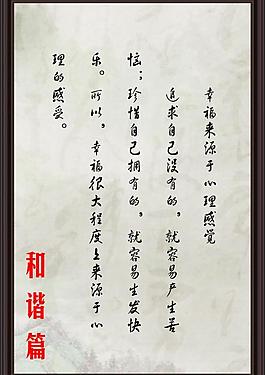 幸福来源于心理感觉
追求自己没有的，就容易产生苦
恼；珍惜自己拥有的，就容易生发快
乐。所以，幸福很大程度上来源于心
理的感受。
和谐篇